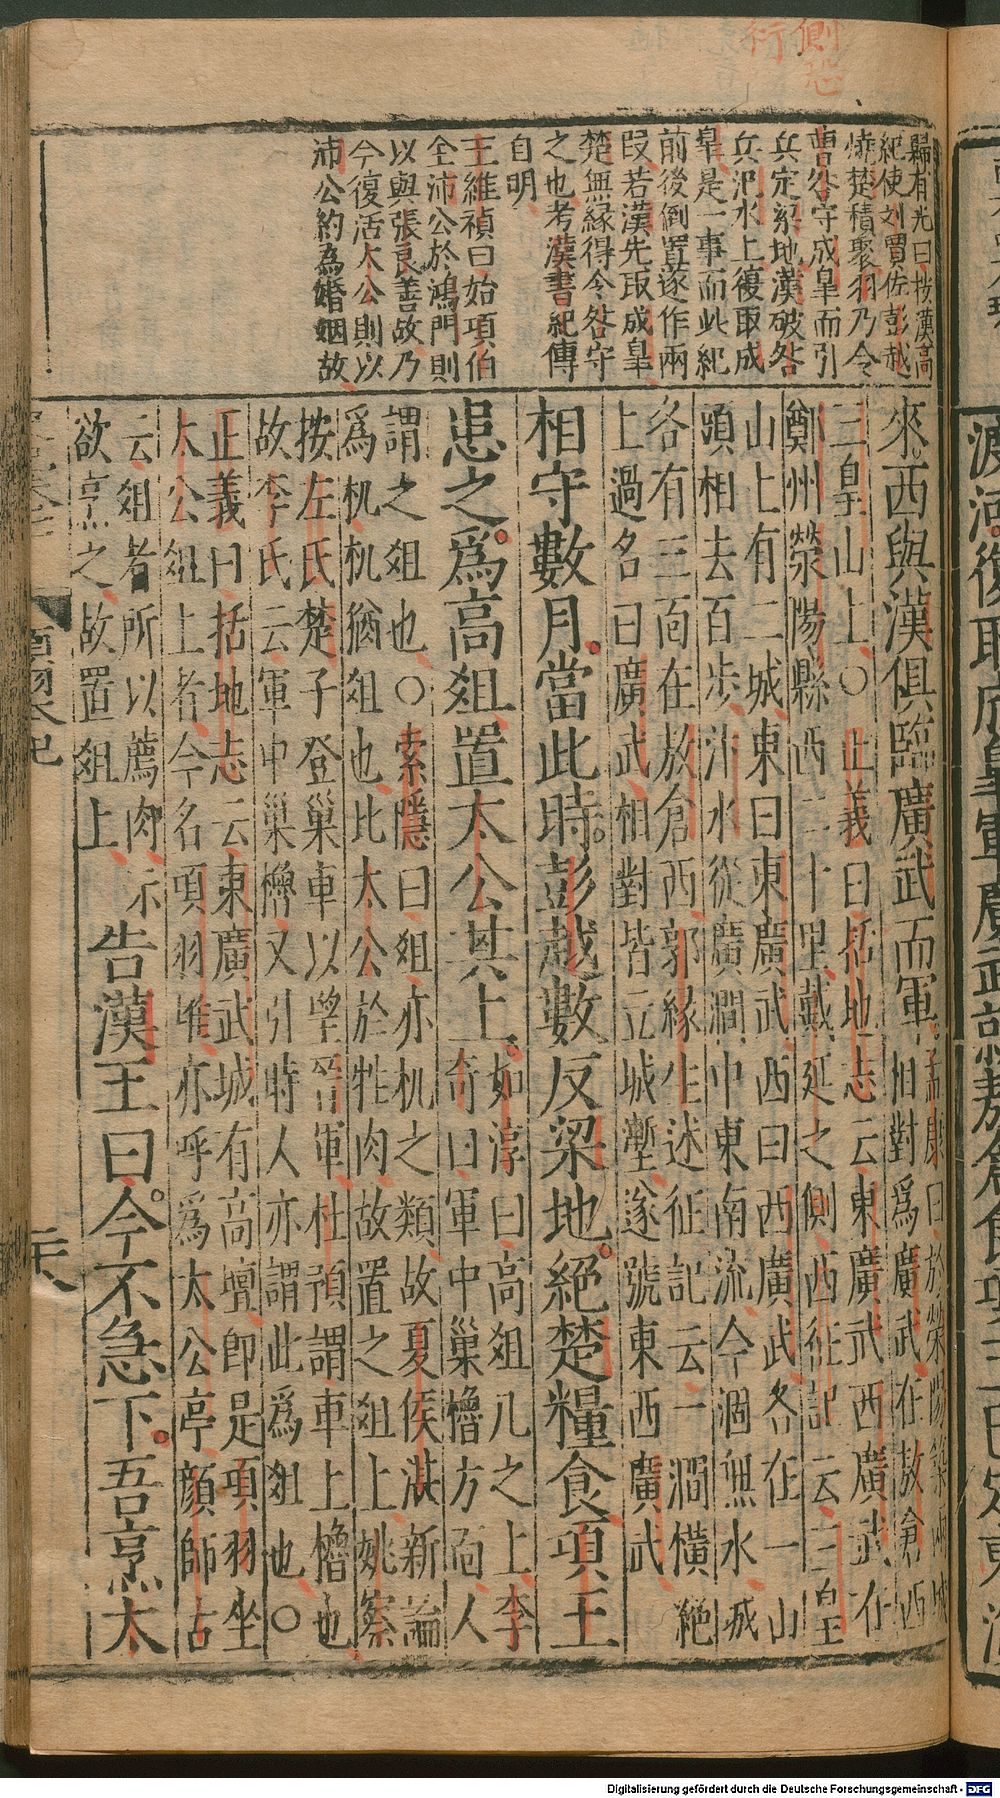 側恐
衍
歸有光曰按漢高
紀使刘賈佐彭越
燒楚積聚羽乃令
曹咎守成皐而引
兵定梁地漢破咎
兵汜水上復取成
皐是一事而此紀
前後倒置遂作兩
段若漢先取成皐
楚無緣得令咎守
之也考漢書紀傳
自明
王維禎曰始項伯
全沛公於鴻門則
以與張良善故乃
今復活太公則以
沛公約為婚姻故
來西與漢俱臨廣武而軍孟康曰於滎陽築兩城
相對爲廣武在敖倉西
三皇山上〇正義曰括地志云東廣武西廣武在
鄭州滎陽縣西二十里戴延之側西征記云三皇
山上有二城東曰東廣武西曰西廣武各在一山
頭相去百步汴水從廣澗中東南流今涸無水城
各有三面在敖倉西郭緣生述征記云一澗橫絶
上過名曰廣武相對皆立城塹遂號東西廣武
相守數月當此時彭越數反梁地絕楚糧食項王
患之爲高俎置太公其上如淳曰高俎几之上李
奇曰軍中巢櫓方面人
謂之俎也〇索隱曰俎亦机之類故夏侯湛新論
爲机机猶俎也比太公於牲肉故置之俎上姚察
按左氏楚子登巢車以望晉軍杜預謂車上櫓也
故李氏云軍中巢櫓又引時人亦謂此爲俎也〇
正義曰括地志云東廣武城有高壇卽是項羽坐
太公俎上者今名項羽堆亦呼爲太公亭顏師古
云俎者所以薦肉示
欲烹之故置俎上
告漢王曰今不急下吾烹太
項羽本紀
二十八
Digitalisierung gefördert durch die Deutsche Forschungsgemeinschaft - DFG